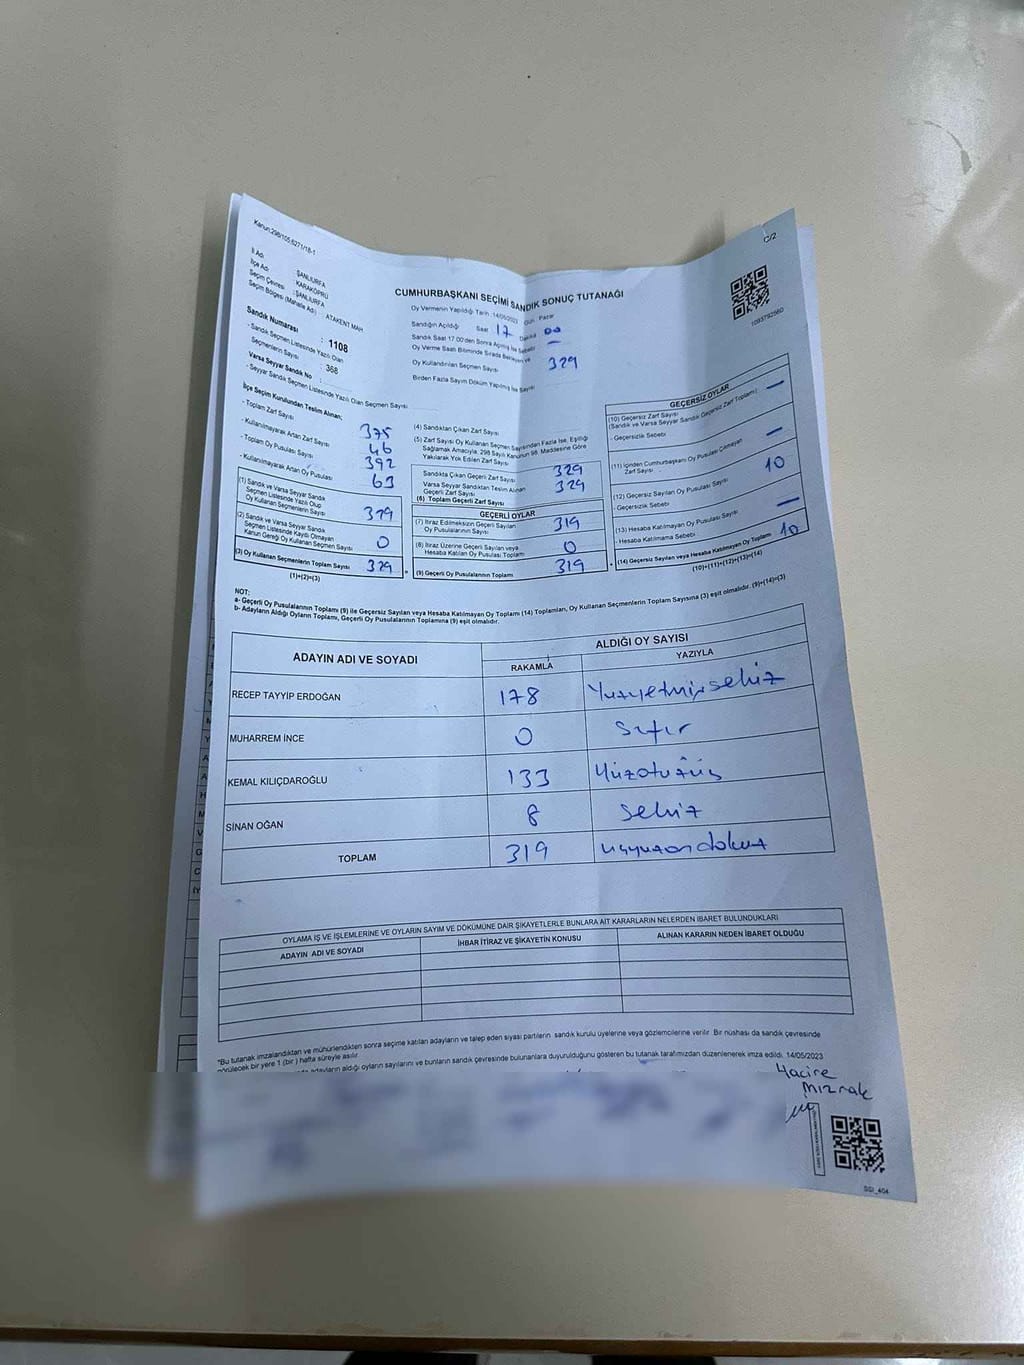 Kanun:298/105,6271/18-1
C/2
İl Adı : ŞANLIURFA
İlçe Adı : KARAKÖPRÜ
Seçim Çevresi : ŞANLIURFA
Seçim Bölgesi (Mahalle Adı) : ATAKENT MAH
Sandık Numarası : 1108
- Sandık Seçmen Listesinde Yazılı Olan
Seçmenlerin Sayısı : 368
Varsa Seyyar Sandık No :
- Seyyar Sandık Seçmen Listesinde Yazılı Olan Seçmen Sayısı
CUMHURBAŞKANI SEÇİMİ SANDIK SONUÇ TUTANAĞI
Oy Vermenin Yapıldığı Tarih :14/05/2023 Gün: Pazar
Sandığın Açıldığı Saat 17 Dakika 00
Sandık Saat 17.00'den Sonra Açılmış İse Sebebi -
Oy Verme Saati Bitiminde Sırada
Oy Kullandırılan Seçmen Sayısı 329
Birden Fazla Sayım Döküm Yapılmış İse Sayısı
1093792560
İlçe Seçim Kurulundan Teslim Alınan:
- Toplam Zarf Sayısı 375
- Kullanılmayarak Artan Zarf Sayısı 46
- Toplam Oy Pusulası Sayısı 392
- Kullanılmayarak Artan Oy Pusulası 63
(1) Sandık ve Varsa Seyyar Sandık
Seçmen Listesinde Yazılı Olup
Oy Kullanan Seçmenlerin Sayısı 329
(2) Sandık ve Varsa Seyyar Sandık
Seçmen Listesinde Kayıtlı Olmayan
Kanun Gereği Oy Kullanan Seçmen Sayısı 0
(3) Oy Kullanan Seçmenlerin Toplam Sayısı 329
(1)+(2)=(3)
(4) Sandıktan Çıkan Zarf Sayısı
(5) Zarf Sayısı Oy Kullanan Seçmen Sayısından Fazla İse, Eşitliği
Sağlamak Amacıyla, 298 Sayılı Kanunun 98. Maddesine Göre
Yakılarak Yok Edilen Zarf Sayısı
Sandıkta Çıkan Geçerli Zarf Sayısı 329
Varsa Seyyar Sandıktan Teslim Alınan
Geçerli Zarf Sayısı 329
(6) Toplam Geçerli Zarf Sayısı
GEÇERLİ OYLAR
(7) İtiraz Edilmeksizin Geçerli Sayılan
Oy Pusulalarının Sayısı 319
(8) İtiraz Üzerine Geçerli Sayılan veya
Hesaba Katılan Oy Pusulası Toplamı 0
(9) Geçerli Oy Pusulalarının Toplamı 319
GEÇERSİZ OYLAR
(10) Geçersiz Zarf Sayısı
(Sandık ve Varsa Seyyar Sandık Geçersiz Zarf Toplamı) -
- Geçersizlik Sebebi
(11) İçinden Cumhurbaşkanı Oy Pusulası Çıkmayan
Zarf Sayısı -
(12) Geçersiz Sayılan Oy Pusulası Sayısı 10
- Geçersizlik Sebebi
(13) Hesaba Katılmayan Oy Pusulası Sayısı -
- Hesaba Katılmama Sebebi
(14) Geçersiz Sayılan veya Hesaba Katılmayan Oy Toplamı 10
(10)+(11)+(12)+(13)=(14)
NOT:
a- Geçerli Oy Pusulalarının Toplamı (9) ile Geçersiz Sayılan veya Hesaba Katılmayan Oy Toplamı (14) Toplamları, Oy Kullanan Seçmenlerin Toplam Sayısına (3) eşit olmalıdır. (9)+(14)=(3)
b- Adayların Aldığı Oyların Toplamı, Geçerli Oy Pusulalarının Toplamına (9) eşit olmalıdır.
ADAYIN ADI VE SOYADI ALDIĞI OY SAYISI
RAKAMLA YAZIYLA
RECEP TAYYİP ERDOĞAN 178 Yüzyetmişsekiz
MUHARREM İNCE 0 Sıfır
KEMAL KILIÇDAROĞLU 133 Yüzotuzüç
SİNAN OĞAN 8 Sekiz
TOPLAM 319 üçyüzondokuz
OYLAMA İŞ VE İŞLEMLERİNE VE OYLARIN SAYIM VE DÖKÜMÜNE DAİR ŞİKAYETLERLE BUNLARA AİT KARARLARIN NELERDEN İBARET BULUNDUKLARI
ADAYIN ADI VE SOYADI İHBAR İTİRAZ VE ŞİKAYETİN KONUSU ALINAN KARARIN NEDEN İBARET OLDUĞU
*Bu tutanak imzalandıktan ve mühürlendikten sonra seçime katılan adayların ve talep eden siyasi partilerin sandık kurulu üyelerine veya gözlemcilerine verilir. Bir nüshası da sandık çevresinde
görülecek bir yere 1 (bir) hafta süreyle asılır.
adayların aldığı oyların sayılarını ve bunların sandık çevresinde bulunanlara duyurulduğunu gösteren bu tutanak tarafımızdan düzenlenerek imza edildi. 14/05/2023
Hacire
Mızrak
SSI_404